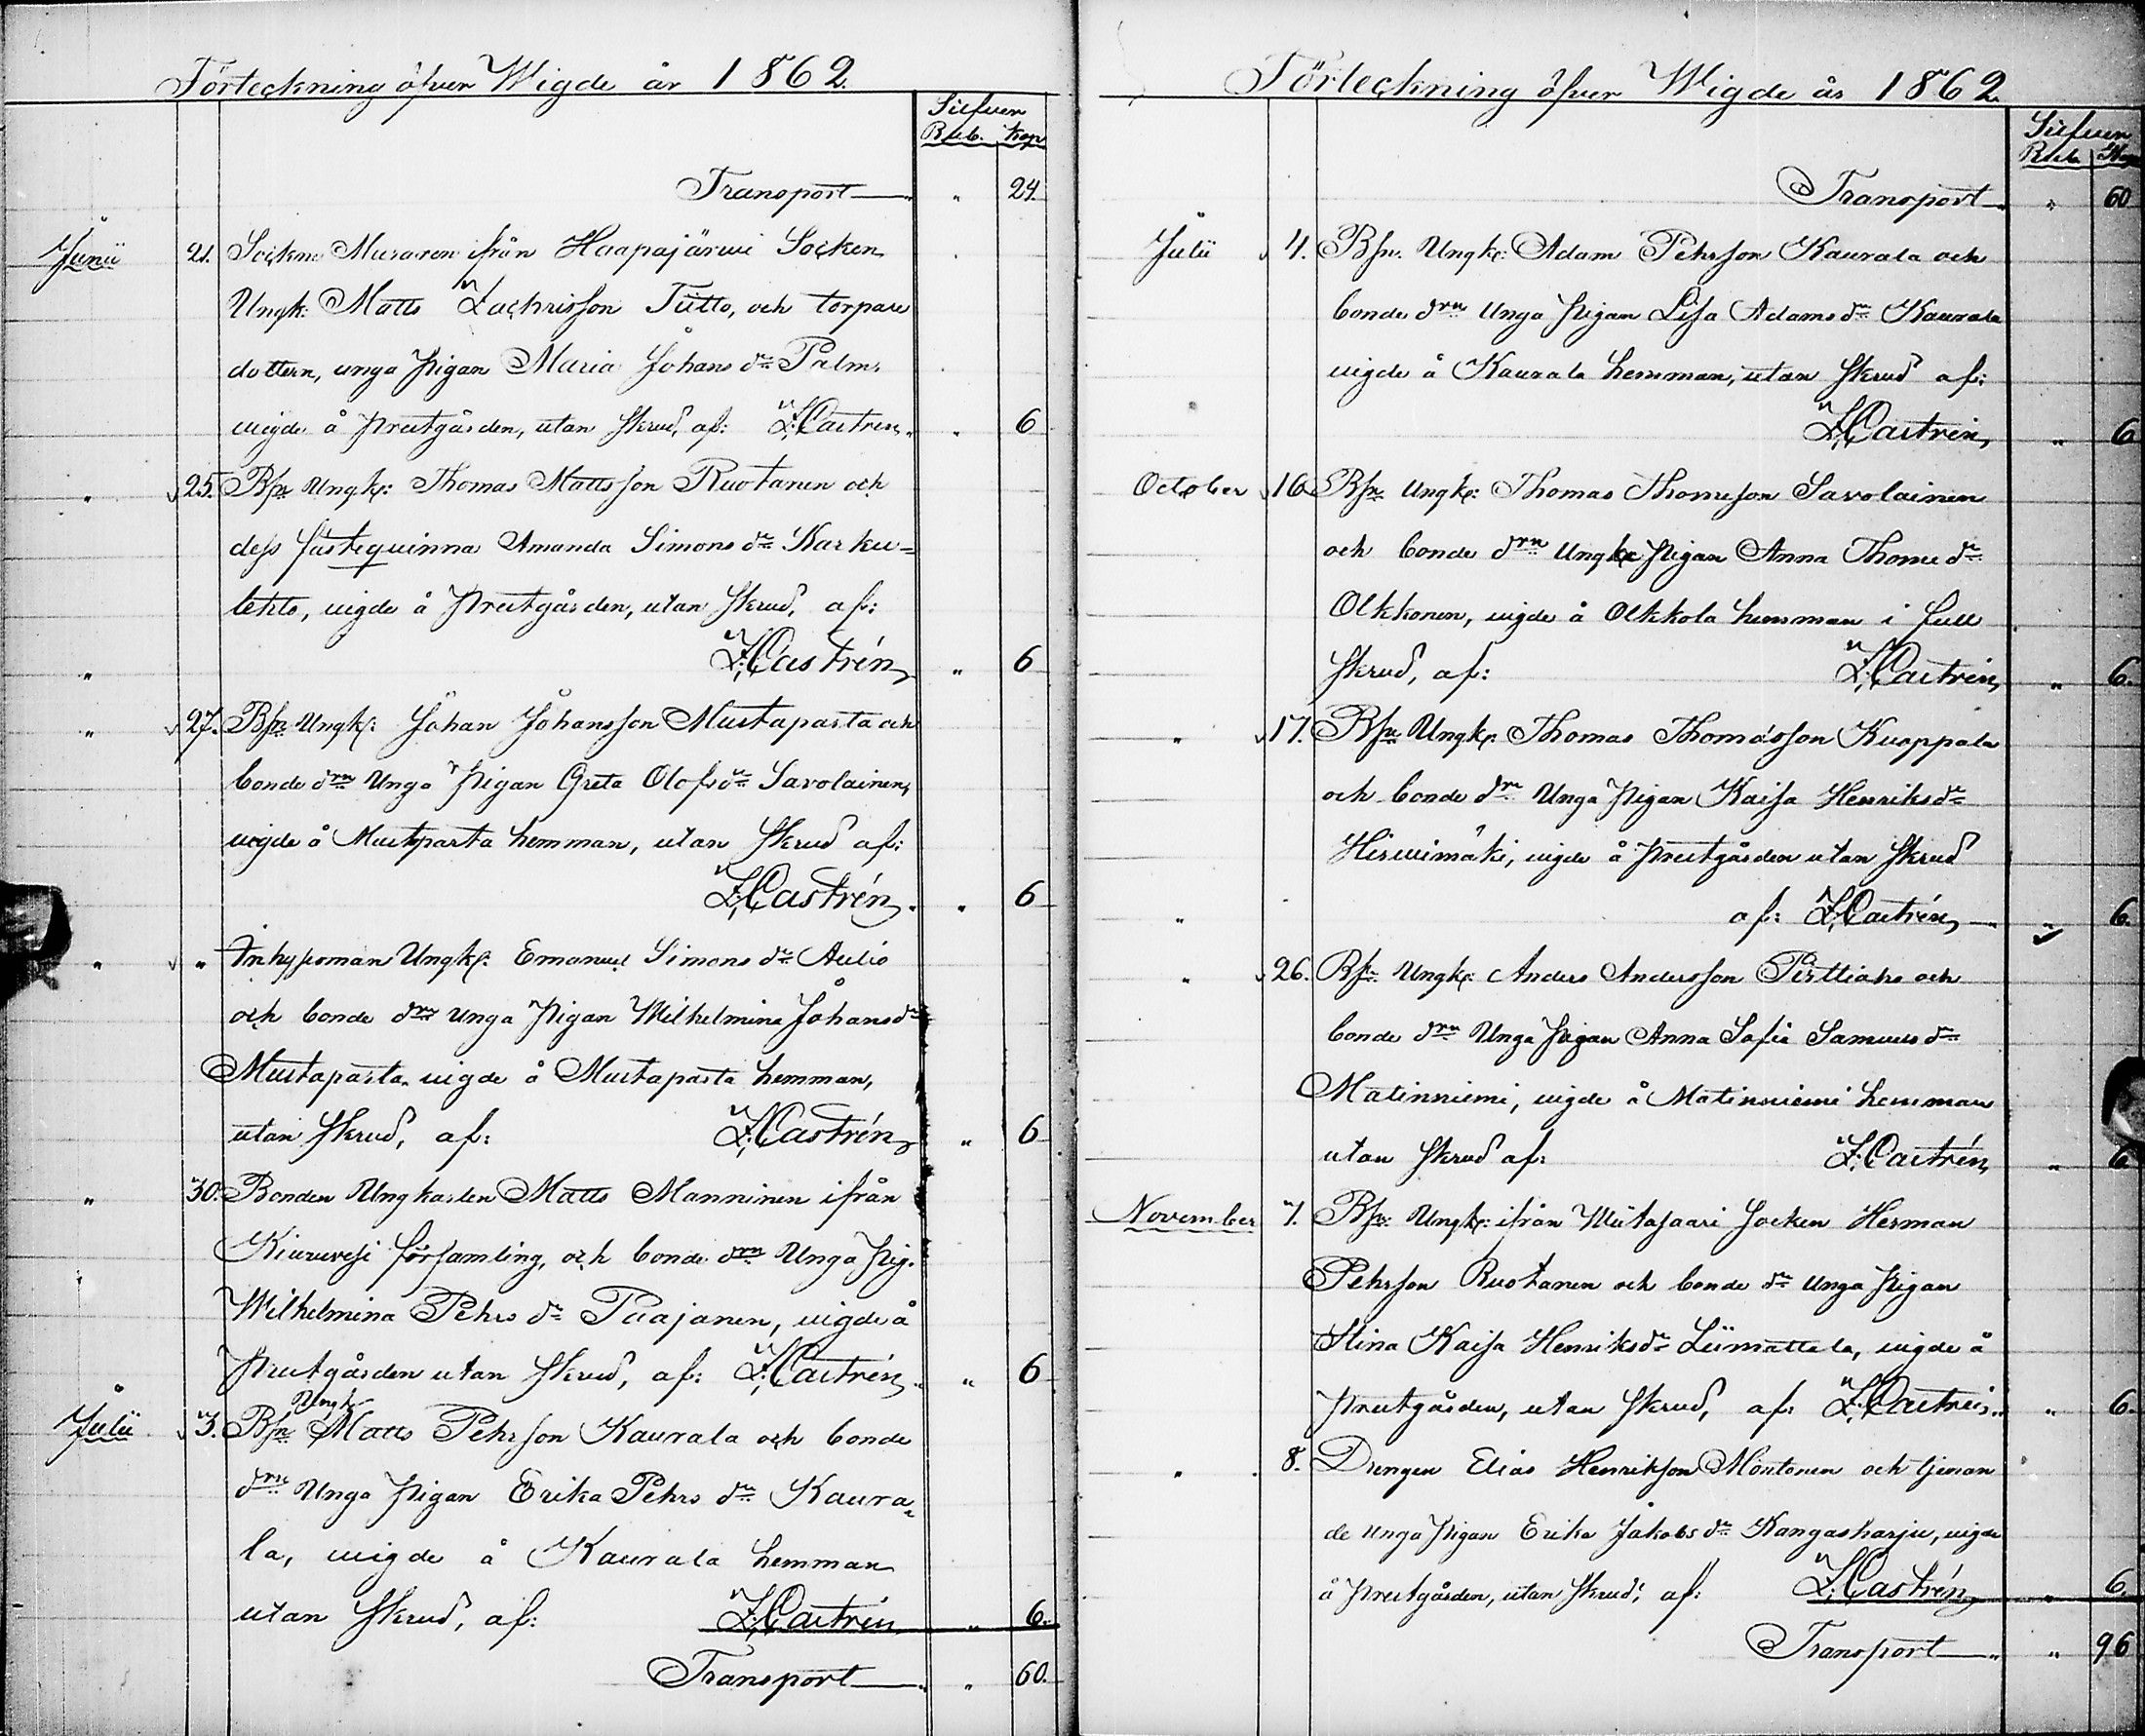 Förteckning öfver Wigde år 1862.
Silfver
Rub. Kop.
Transport — " 24.
Junii 21. Socken Muraren ifrån Haapajärwi Socken
Ungk: Matts Zachrisson Tütto, och torpare
dottern, unga pigan Maria Johans dr Palm,
vigde å prestgården, utan skrud, af: Z. Castrén. " 6
" 25. Bsn Ungk: Thomas Mattsson Ruotanen och
dess fästeqvinna Amanda Simons dr Karku=
lehto, vigde å prestgården, utan skrud, af:
" Z. Castrén " 6
" 27. Bsn Ungk: Johan Johansson Mustaparta och
bonde drn Unga Pigan Greta Olofs dr Savolainen,
vigde å Mustaparta hemman, utan skrud af:
Z. Castrén. " 6
" " Inhysoman Ungk: Emanuel Simons dr Aulio
och bonde drn unga pigan Wilhelmina Johans dr
Mustaparta vigde å Mustaparta hemman,
utan skrud, af: Z. Castrén " 6
" 30. Bonden Ungkarlen Matts Manninen ifrån
Kiuruvesi församling, och bonde drn Unga pig.
Wilhelmina Pehrs dr Paajanen, vigde å
prestgården utan skrud, af: Z. Castrén. " 6
Ungk
Julii 3. Bsn Matts Pehrson Kaurala och bonde
drn Unga pigan Erika Pehrs dr Kaura=
la, vigde å Kaurala hemman
utan skrud, af: Z. Castrén " 6.
Transport — " 60.
Förteckning öfver Wigde år 1862.
Silfver
Rub. Kop
Transport — " 60
Julii 4. Bsn. Ungk: Adam Pehrson Kaurala och
bonde drn Unga pigan Lisa Adams dr Kaurala
vigde å Kaurala hemman, utan skrud af:
Z. Castrén, " 6
October 16. Bsn Ungk: Thomas Thomeson Savolainen
och bonde drn Unga pigan Anna Thome dr
Olkkonen, vigde å Olkkola hemman i full
skrud, af: Z. Castrén, " 6.
" 17. Bsn Ungk: Thomas Thomasson Kuoppala
och bonde drn Unga pigan Kaisa Henriks dr
Hirvimäki, vigde å prestgården utan skrud
" af: Z. Castrén, — " 6.
" 26. Bsn Ungk: Anders Andersson Pirttiaho och
bonde drn Unga pigan Anna Sofia Samuels dr
Matinniemi, vigde å Matinniemi hemman
utan skrud af: Z. Castrén " 6
November 7. Bsn: Ungk: ifrån Wiitasaari Socken Herman
Pehrson Ruotanen och bonde dr unga pigan
Stina Kaisa Henriks dr Liimattala, vigde å
prestgården, utan skrud, af: Z. Castrén. " 6.
" 8. Drengen Elias Henrikson Möntönen och tjenan
de unga pigan Erika Jakobs dr Kangasharju, vigde
å prestgården, utan skrud, af: Z. Castrén " 6.
Transport — " 96